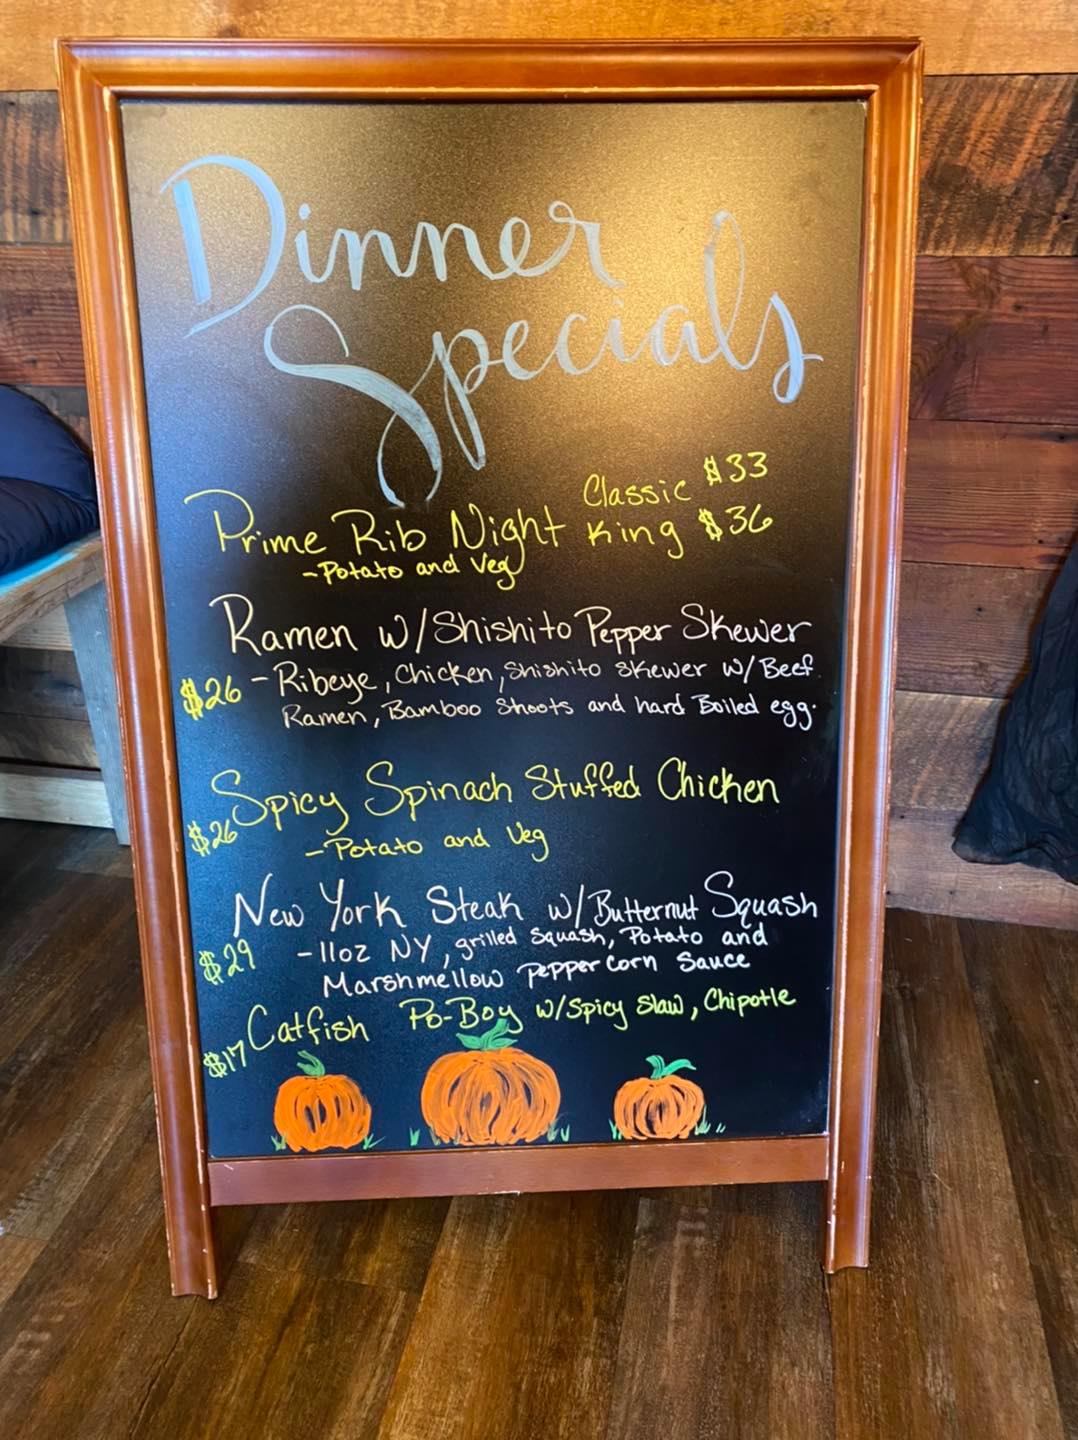 Dinner
Specials
Classic $33
Prime Rib Night King $36
-Potato and Veg
Ramen w/Shishito Pepper Skewer
$26 -Ribeye, Chicken, Shishito Skewer w/Beef
Ramen, Bamboo Shoots and hard Boiled egg.
Spicy Spinach Stuffed Chicken
$26 -Potato and Veg
New York Steak w/Butternut Squash
$29 -11oz NY, grilled Squash, Potato and
Marshmellow peppercorn Sauce
$17 Catfish Po-Boy w/Spicy Slaw, Chipotle